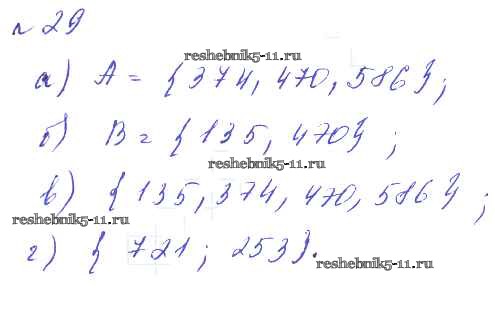 № 29
reshebnik5-11.ru
а) A = {374, 470, 586};
б) B = {135, 470};
reshebnik5-11.ru
в) {135, 374, 470, 586};
reshebnik5-11.ru
г) {721; 253}.
reshebnik5-11.ru